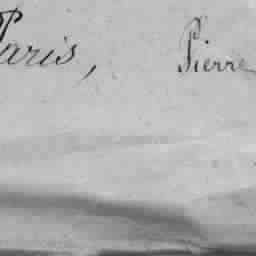 Paris, Pierre